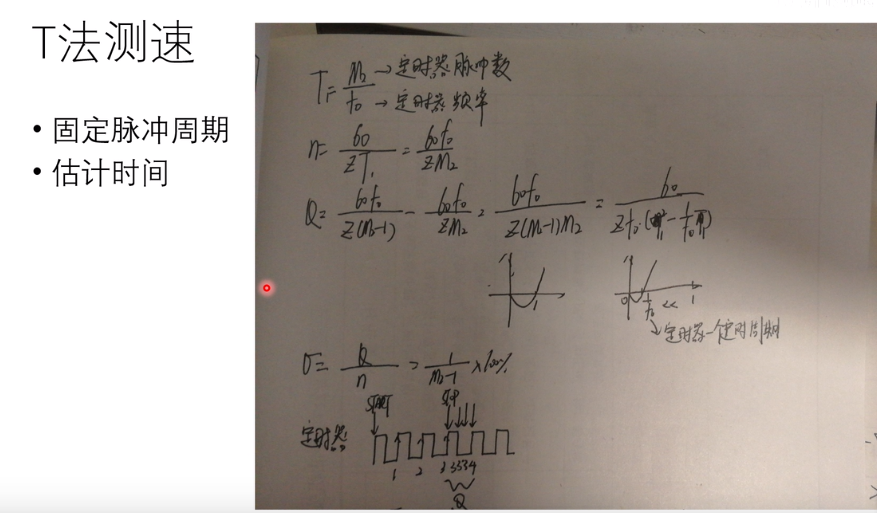 T法测速
• 固定脉冲周期
• 估计时间
T₁= M₂/f₀ →定时器脉冲数
→定时器频率
n= 60/ZT₁ = 60f₀/ZM₂
Q= 60f₀/Z(M₂-1) - 60f₀/ZM₂ = 60f₀/Z(M₂-1)M₂ = 60/
1
0 1/f₀ << 1
→定时器一个定时周期
σ= Q/n = 1/M₂-1 ×100%
START STOP
定时器
1 2 3 3 3 3 4
Q